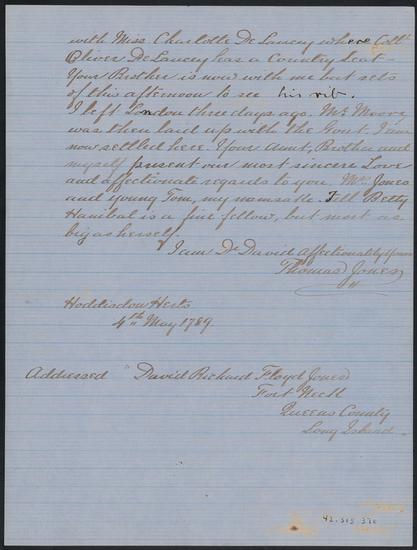 with Miss Charlotte De Lancey where Coll
Oliver De Lancey has a Country Seat -
Your Brother is now with me but sets
of this afternoon to see his rib.
I left London three days ago. Mr Moore
was then laid up with the Gout. I am
now settled here. Your Aunt, Brother and
myself present our most sincere Love
and affectionate regards to you, Mrs Jones
and young Tom, my namesake. Tell Betty
Hanibal is a fine fellow, but most as
big as herself.
I am Dr David Affectionately Yours
Thomas Jones
Hoddisdon Herts
4th May 1789.
Addressed David Richard Floyd Jones
Fort Neck
Queens County
Long Island
42.315.370